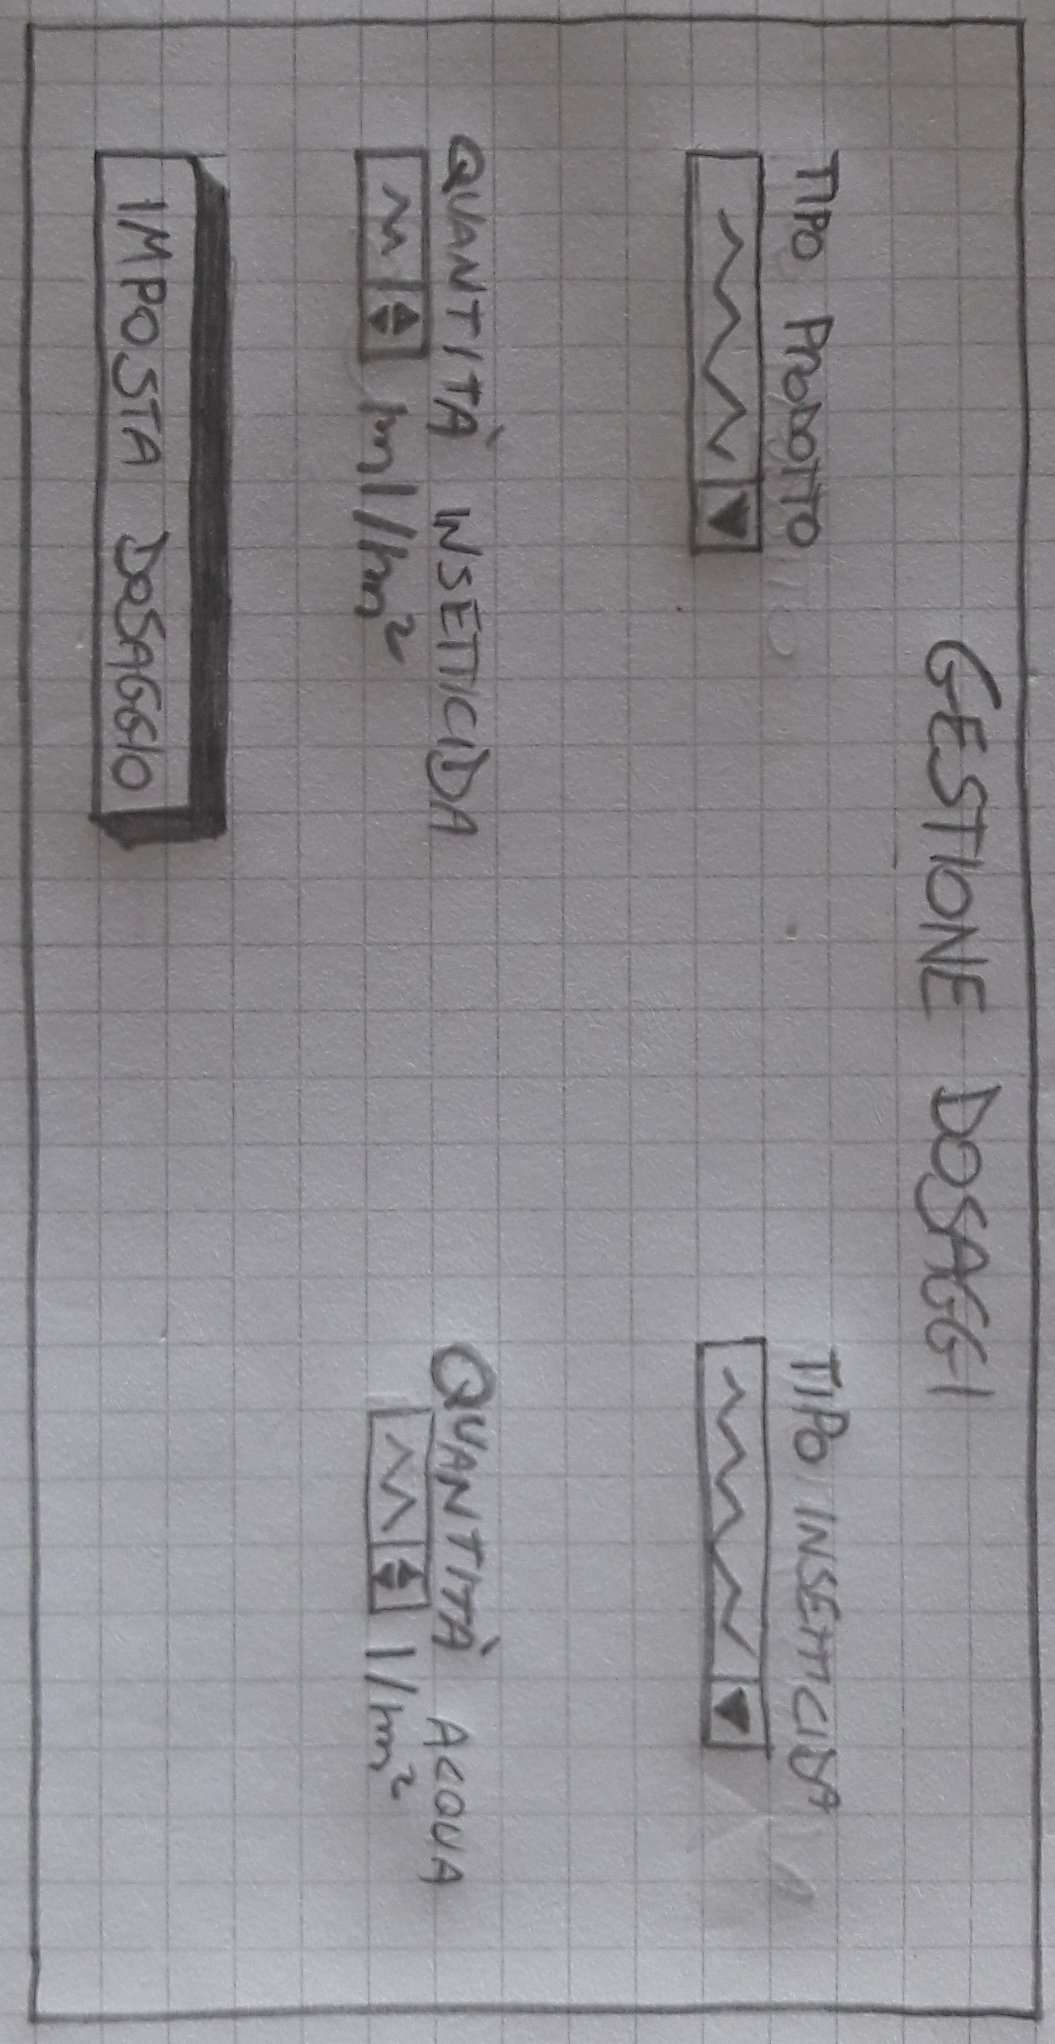 GESTIONE DOSAGGI
TIPO PRODOTTO
TIPO INSETTICIDA
QUANTITÀ INSETTICIDA
ml/m²
QUANTITÀ ACQUA
l/m²
IMPOSTA DOSAGGIO